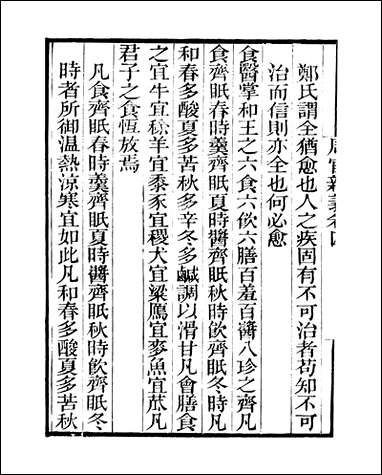 周官新義卷四
鄭氏謂全猶愈也人之疾固有不可治者苟知不可
治而信則亦全也何必愈
食醫掌和王之六食六飲六膳百羞百醬八珍之齊凡
食齊眡春時羹齊眡夏時醬齊眡秋時飲齊眡冬時凡
和春多酸夏多苦秋多辛冬多鹹調以滑甘凡會膳食
之宜牛宜稌羊宜黍豕宜稷犬宜粱鴈宜麥魚宜苽凡
君子之食恆放焉
凡食齊眡春時羹齊眡夏時醬齊眡秋時飲齊眡冬
時者所御溫熱涼寒宜如此凡和春多酸夏多苦秋